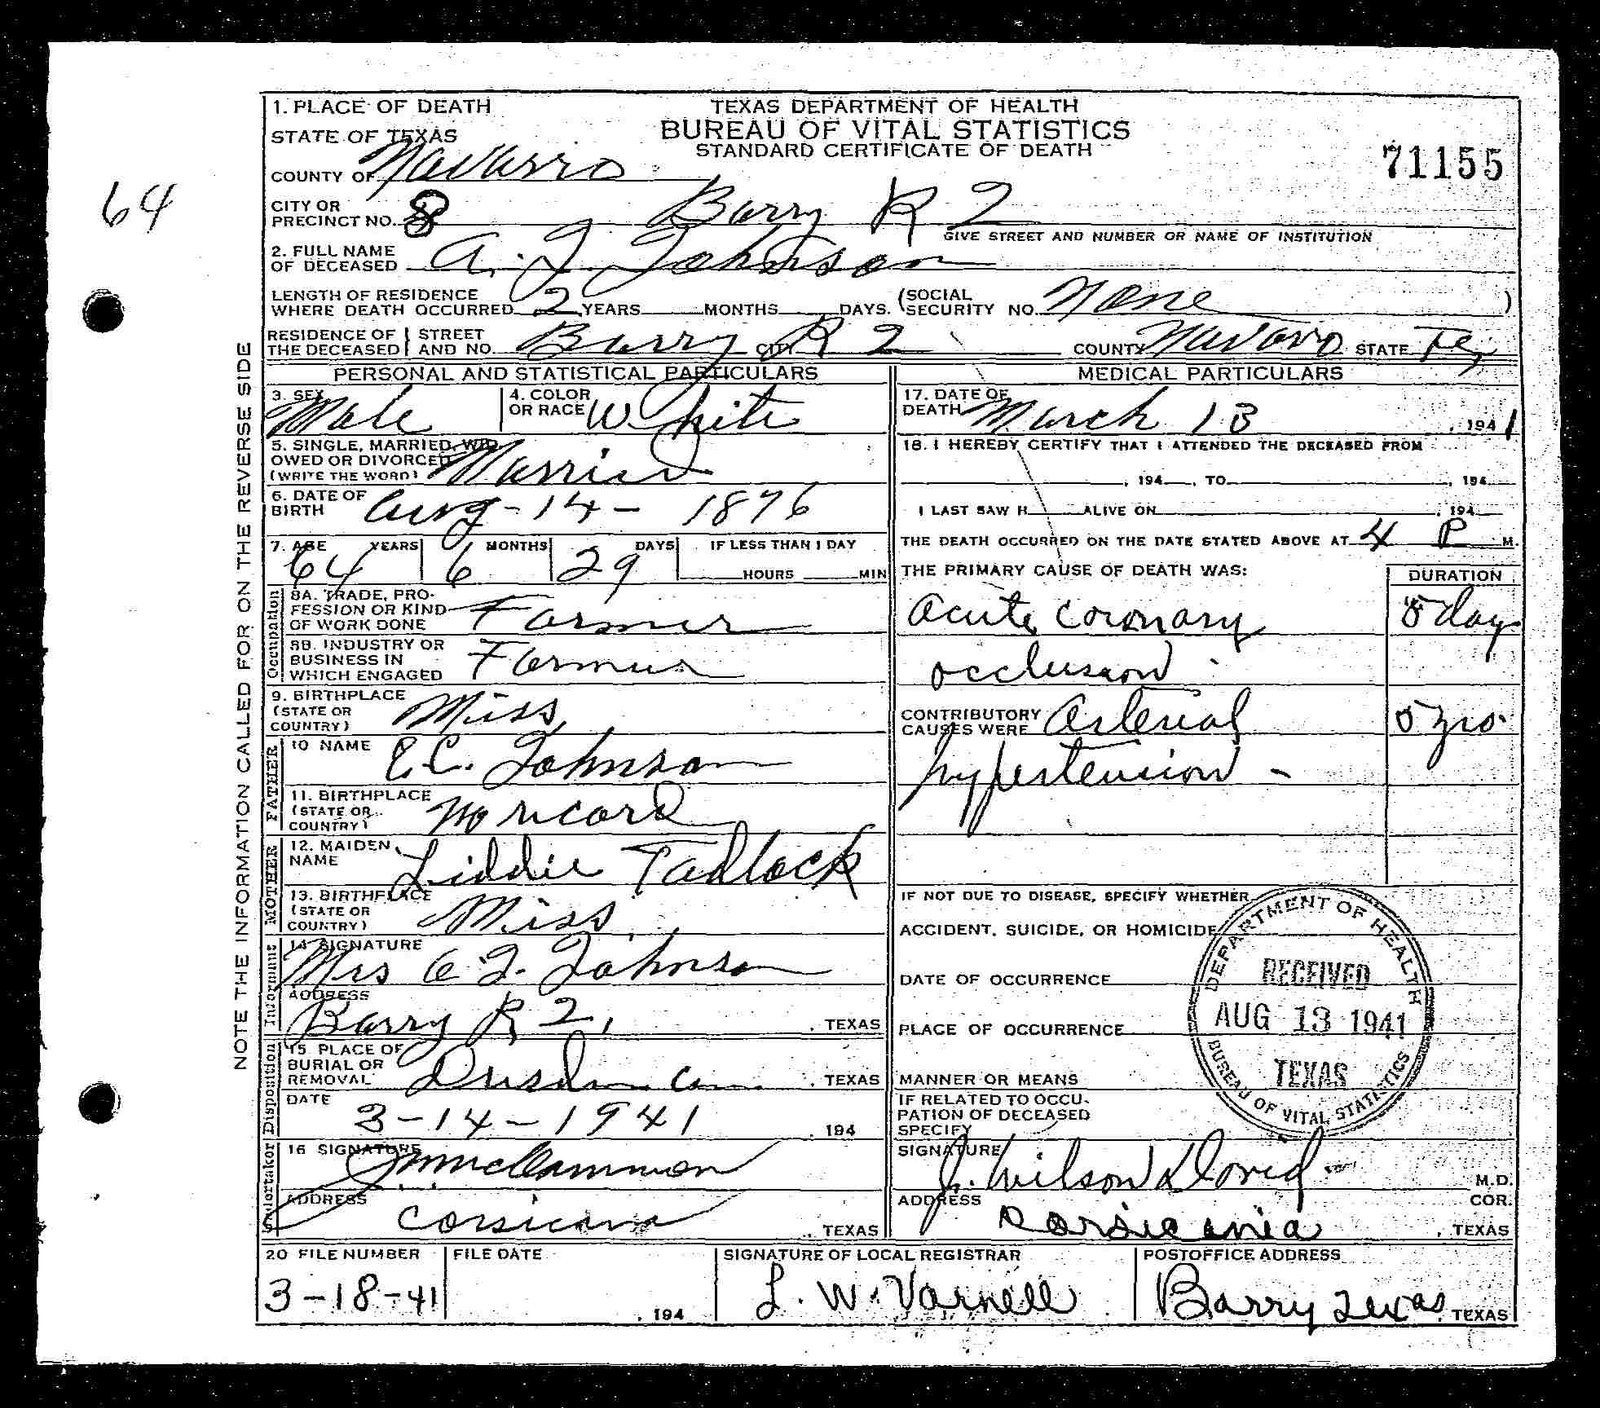 1. PLACE OF DEATH
STATE OF TEXAS
COUNTY OF Navarro
CITY OR PRECINCT NO. 8 Barry R 2
TEXAS DEPARTMENT OF HEALTH
BUREAU OF VITAL STATISTICS
STANDARD CERTIFICATE OF DEATH
71155
64
GIVE STREET AND NUMBER OR NAME OF INSTITUTION
2. FULL NAME OF DECEASED A. J. Johnson
LENGTH OF RESIDENCE WHERE DEATH OCCURRED 2 YEARS MONTHS DAYS. (SOCIAL SECURITY NO. None )
RESIDENCE OF THE DECEASED STREET AND NO. Barry CITY R 2 COUNTY Navarro STATE Tex
NOTE THE INFORMATION CALLED FOR ON THE REVERSE SIDE
PERSONAL AND STATISTICAL PARTICULARS
3. SEX Male
4. COLOR OR RACE White
5. SINGLE, MARRIED, WIDOWED OR DIVORCED (WRITE THE WORD) Married
6. DATE OF BIRTH Aug - 14 - 1876
7. AGE 64 YEARS 6 MONTHS 29 DAYS IF LESS THAN 1 DAY HOURS MIN
Occupation
8A. TRADE, PROFESSION OR KIND OF WORK DONE Farmer
8B. INDUSTRY OR BUSINESS IN WHICH ENGAGED Farmer
9. BIRTHPLACE (STATE OR COUNTRY) Miss
FATHER
10 NAME E.C. Johnson
11. BIRTHPLACE (STATE OR COUNTRY) No record
MOTHER
12. MAIDEN NAME Liddie Tadlock
13. BIRTHPLACE (STATE OR COUNTRY) Miss.
Informant
14 SIGNATURE Mrs A. J. Johnson
ADDRESS Barry R 2, , TEXAS
Disposition
15 PLACE OF BURIAL OR REMOVAL Dresden Cem. , TEXAS
DATE 3-14-1941 , 194
Undertaker
16 SIGNATURE McCammon
ADDRESS Corsicana , TEXAS
MEDICAL PARTICULARS
17. DATE OF DEATH March 13 , 1941
18. I HEREBY CERTIFY THAT I ATTENDED THE DECEASED FROM
, 194 , TO , 194
I LAST SAW H ALIVE ON , 194
THE DEATH OCCURRED ON THE DATE STATED ABOVE AT 4 P M.
THE PRIMARY CAUSE OF DEATH WAS: DURATION
Acute Coronary 5 day
occlusion.
CONTRIBUTORY CAUSES WERE Arterial 5 yrs.
hypertension -
IF NOT DUE TO DISEASE, SPECIFY WHETHER
ACCIDENT, SUICIDE, OR HOMICIDE
DATE OF OCCURRENCE
PLACE OF OCCURRENCE
MANNER OR MEANS
IF RELATED TO OCCUPATION OF DECEASED SPECIFY
DEPARTMENT OF HEALTH
RECEIVED
AUG 13 1941
TEXAS
BUREAU OF VITAL STATISTICS
SIGNATURE J. Wilson David M.D.
ADDRESS Corsicana COR. , TEXAS
20 FILE NUMBER 3-18-41
FILE DATE , 194
SIGNATURE OF LOCAL REGISTRAR L. W. Varnell
POSTOFFICE ADDRESS Barry Texas, TEXAS